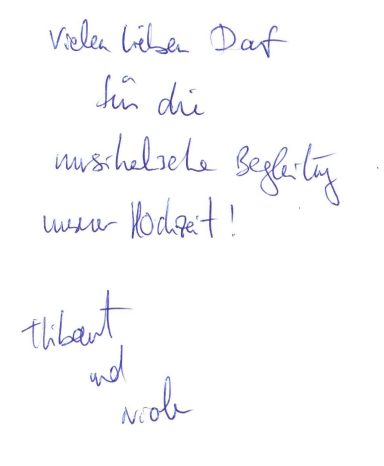 Vielen lieben Dank
für die
musikalische Begleitung
unserer Hochzeit!
Thibaut
und
Nicole